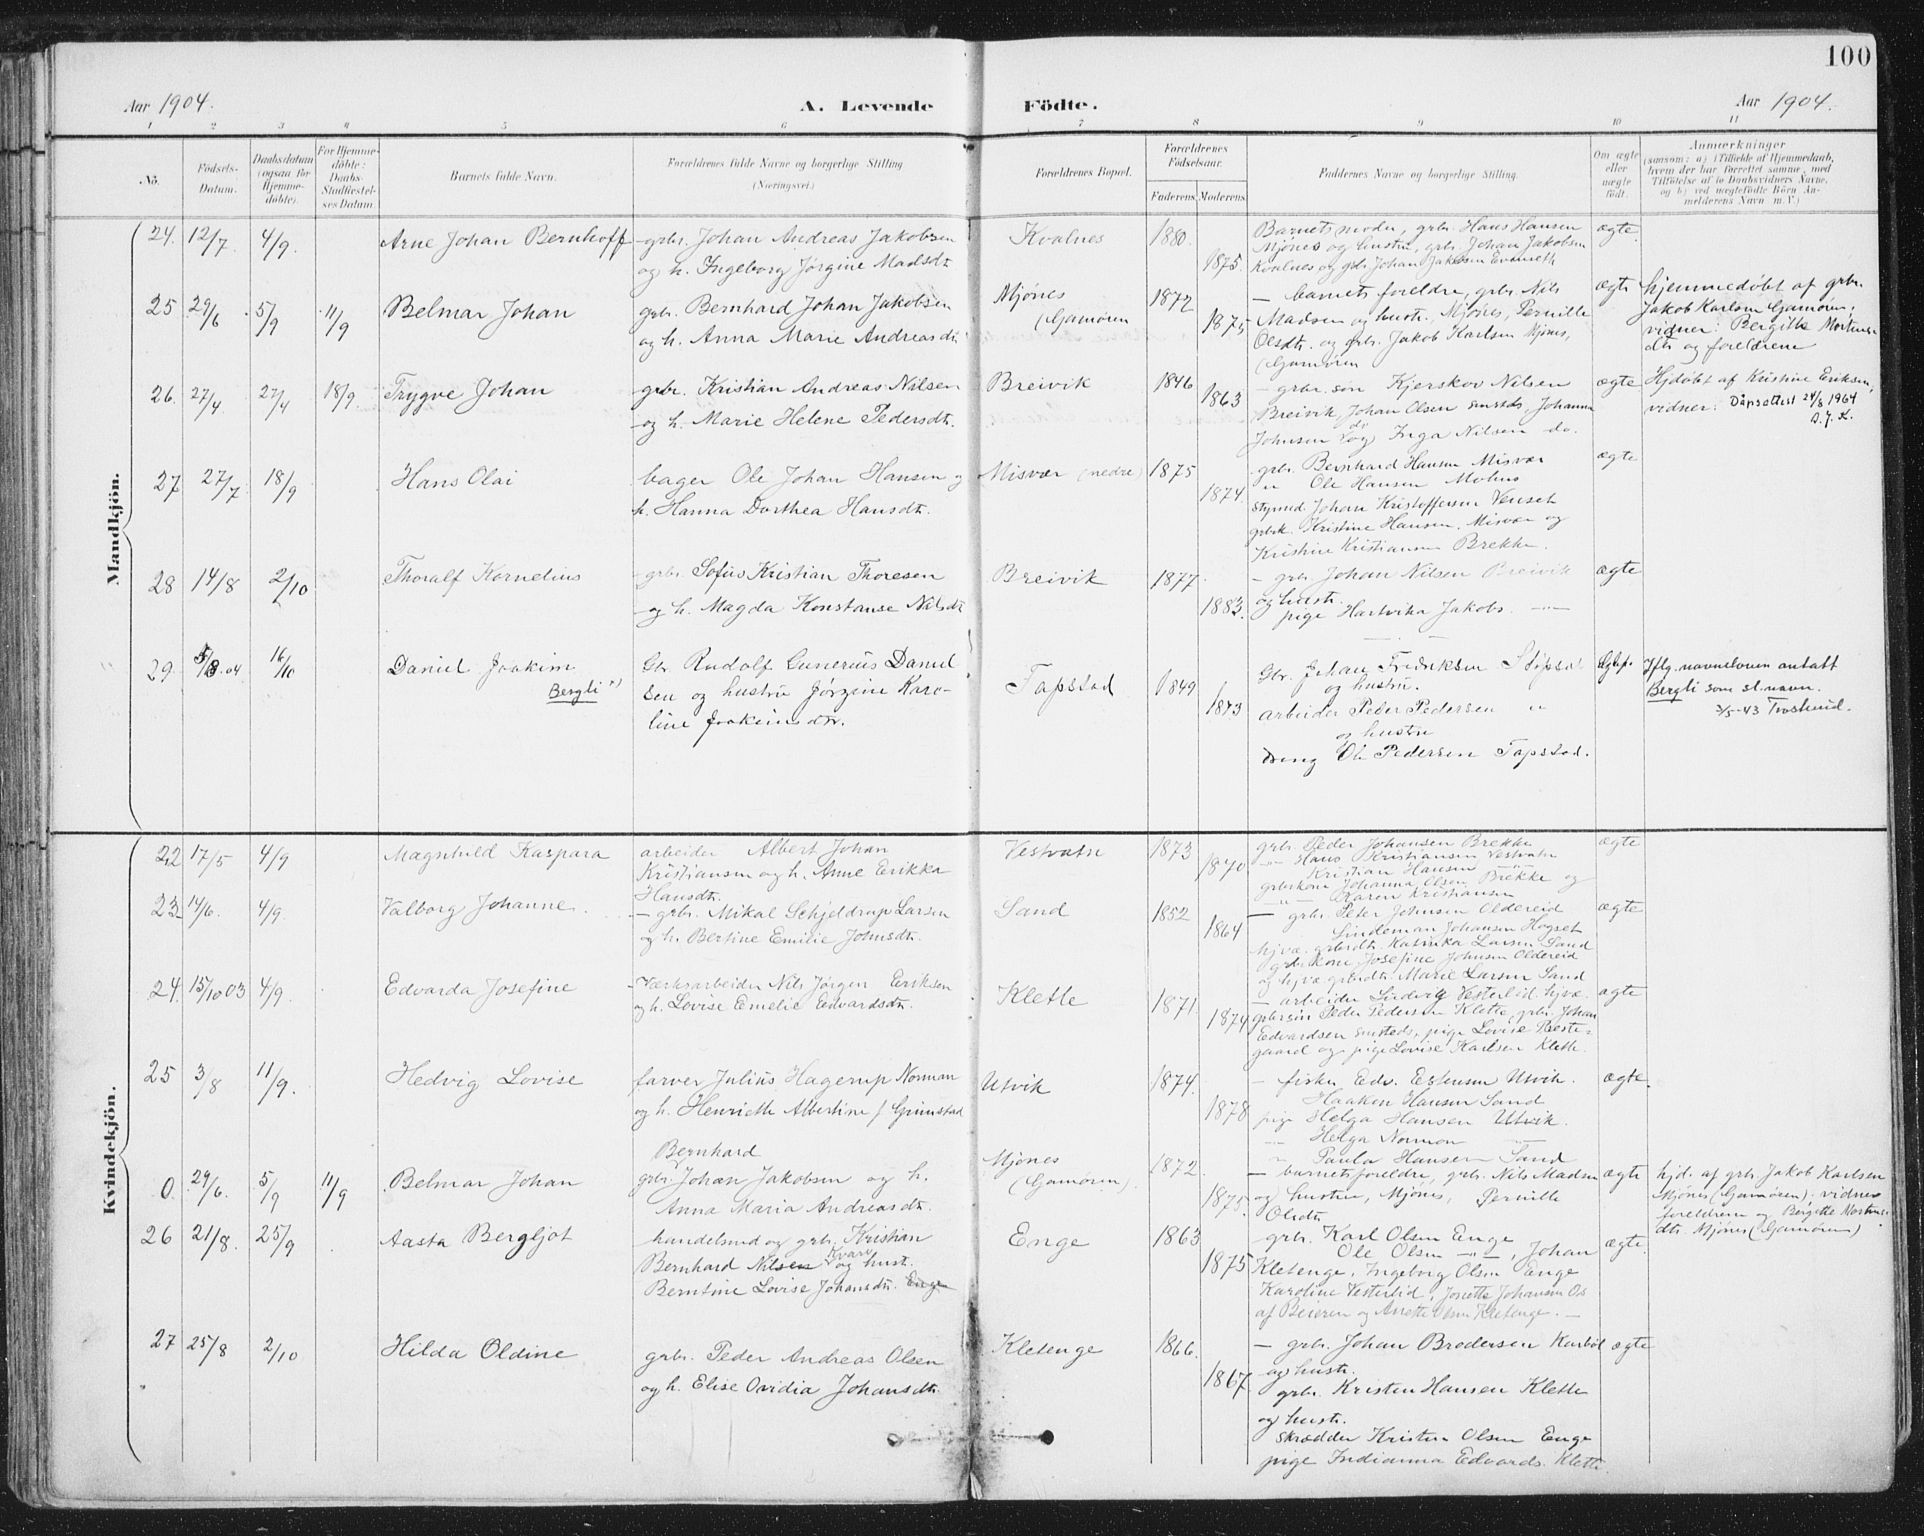 100
Aar 1904. A. Levende Födte. Aar 1904.
1 2 3 4 5 6 7 8 9 10 11
No.
Födsels-
Datum.
Daabsdatum
(ogsaa for
Hjemme-
döbte).
For Hjemme-
döbte:
Daabs-
Stadfæstel-
ses Datum.
Barnets fulde Navn.
Forældrenes fulde Navne og borgerlige Stilling
(Næringsvei.)
Forældrenes Bopæl.
Forældrenes
Födselsaar.
Faderens Moderens
Faddernes Navne og borgerlige Stilling.
Om ægte
eller
uægte
födt.
Anmærkninger
(saasom: a) i Tilfælde af Hjemmedaab,
hvem der har forrettet samme, med
Tilföielse af to Daabsvidners Navne,
og b) ved uægtefödte Börn An-
melderens Navn m. V.)
Mandkjön.
24. 12/7 4/9. Arne Johan Bernhoff
grbr. Johan Andreas Jakobsen
og h. Ingeborg Jørgine Madsdt.
Kvalnes 1880. 1875.
Barnets moder, grbr. Hans Hansen
Mjønes og hustru, grbr. Johan Jakobsen
Kvalnes og grbr. Johan Jakobsen Evenseth
ægte.
25 29/6 5/9 11/9 Belmar Johan
grbr. Bernhard Johan Jakobsen
og h. Anna Marie Andreasdt.
Mjønes
(Gamøren
1872 1875
– barnets foreldre, grbr. Nils
Madsen og hustr., Mjønes, Pernille
Olsdt. og grbr. Jakob Karlsen Mjønes,
(Gamøren
ægte
hjemmedøbt af grbr.
Jakob Karlsen Gamøren;
vidner: Bergitte Mortens-
dtr og foreldrene
26. 27/4 27/4 18/9 Trygve Johan
grbr. Kristian Andreas Nilsen
og h. Marie Helene Pedersdt.
Breivik 1846 1863
– grbr. søn Kjerskov Nilsen
Breivik, Johan Olsen smsteds, Johanna
Johnsen do og Inga Nilsen do.
ægte
Hjdøbt af Kristine Eriksen,
vidner: Dåpsattest 24/8 1964
27 27/7 18/9 Hans Olai
bager Ole Johan Hansen og
h. Hanna Dorthea Hansdt.
Misvær (nedre) 1875 1874.
grbr. Bernhard Hansen Misvær
" Ole Hansen Mohus
Johan Kristoffersen Venset
grbrk. Kristine Hansen, Misvær og
Kristine Kristiansen Brekke.
ægte
28 14/8 2/10 Thoralf Kornelius
grbr. Sofus Kristian Thoresen
og h. Magda Konstanse Nilsdt
Breivik 1877. 1883.
– grbr. Johan Nilsen Breivik
og hustr.
pige Hartvika Jakobs. –"–
ægte
29. 5/8.04 16/10 Daniel Joakim
Bergli ")
Gbr. Rudolf Gunerius Daniel
sen og hustru Jørgine Karo-
line Joakimsdtr.
Tapstad 1849 1873
Gbr. Johan Fredriksen
og hustru.
arbeider Peder Pedersen "
og hustru
Dreng Ole Pedersen Tapstad.
Iflg. navneloven antatt
Bergli som sl.navn.
3/5-43
Kvindekjön.
22 17/5 4/9 Magnhild Kaspara
arbeider Albert Johan
Kristiansen og h. Anne Erikka
Hansdt.
Vestvatn 1873 1870
grbr. Peder Johansen Brekke
–"– Hans Kristiansen Vestvatn
Kristian Hansen
grbrkone Johanna Olsen Brekke og
–"– Karen Kristiansen
ægte
23 14/6. 4/9. Valborg Johanne.
– grbr. Mikal Schjeldrup Larsen
og h. Bertine Emilie Johnsdt.
Sand 1852 1864
– grbr. Peter Johnsen Oldereid
Lindeman Johansen Hogset
hjvæ. grbrdt. Katinka Larsen Sand
grbrkone Josefine Johnsen Oldereid
og hjvæ grbrdt. Marie Larsen Sand
ægte
24. 15/10 03 4/9. Edvarda Josefine
Værksarbeider Nils Jørgen Eriksen
og h. Lovise Emelie Edvardsdt.
Klette 1871. 1874
arbeider Ludvig Vesterlid hjvæ.
grbrsøn Peder Pedersen Klette, grbr. Johan
Edvardsen smsteds, pige Lovise Preste-
gaard og pige Lovise Karlsen Klette.
ægte
25 3/8 11/9. Hedvig Lovise
farver Julius Hagerup Norman
og h. Henriette Albertine f Grimstad
Utvik 1874. 1878
– fisker Edv. Estensen Utvik.
Haaken Hansen Sand
pige Helga Hansen Utvik.
–"– Helga Norman –"–
" Paula Hansen Sand
ægte.
0. 29/6. 5/9 11/9 Belmar Johan
Bernhard
grbr. Johan Jakobsen og h.
Anna Maria Andreasdt.
Mjønes
(Gamøren).
1872. 1875.
– barnets foreldre, grbr. Nils Madsen
og hustru, Mjønes, Pernille
Olsdt.
ægte
hjd. af grbr. Jakob Karlsen
Mjønes (Gamøren); vidner
foreldrene og Bergitte Mortens-
dtr. Mjønes (Gamøren)
26 21/8. 25/9 Aasta Bergljot
handelsmd og grbr. Kristian
Bernhard Nilsen Kvare og hust.
Berntine Lovise Johansdt. Enge
Enge 1863 1875
grbr. Karl Olsen Enge
Ole Olsen –"–, Johan
Kletenge, Ingeborg Olsen Enge
Karoline Vesterlid, Jonette Johansen Os
af Beieren og Anette Olsen Kletenge. –
ægte.
27 25/8 2/10 Hilda Oldine
grbr. Peder Andreas Olsen
og h. Elise Ovidia Johansdt.
Kletenge 1866. 1867
– grbr. Johan Brodersen Karbøl
og hustr.
grbr. Kristen Hansen Klette
og hustr.
skrædder Kristen Olsen Enge
pige Indianna Edvards. Klette.
ægte